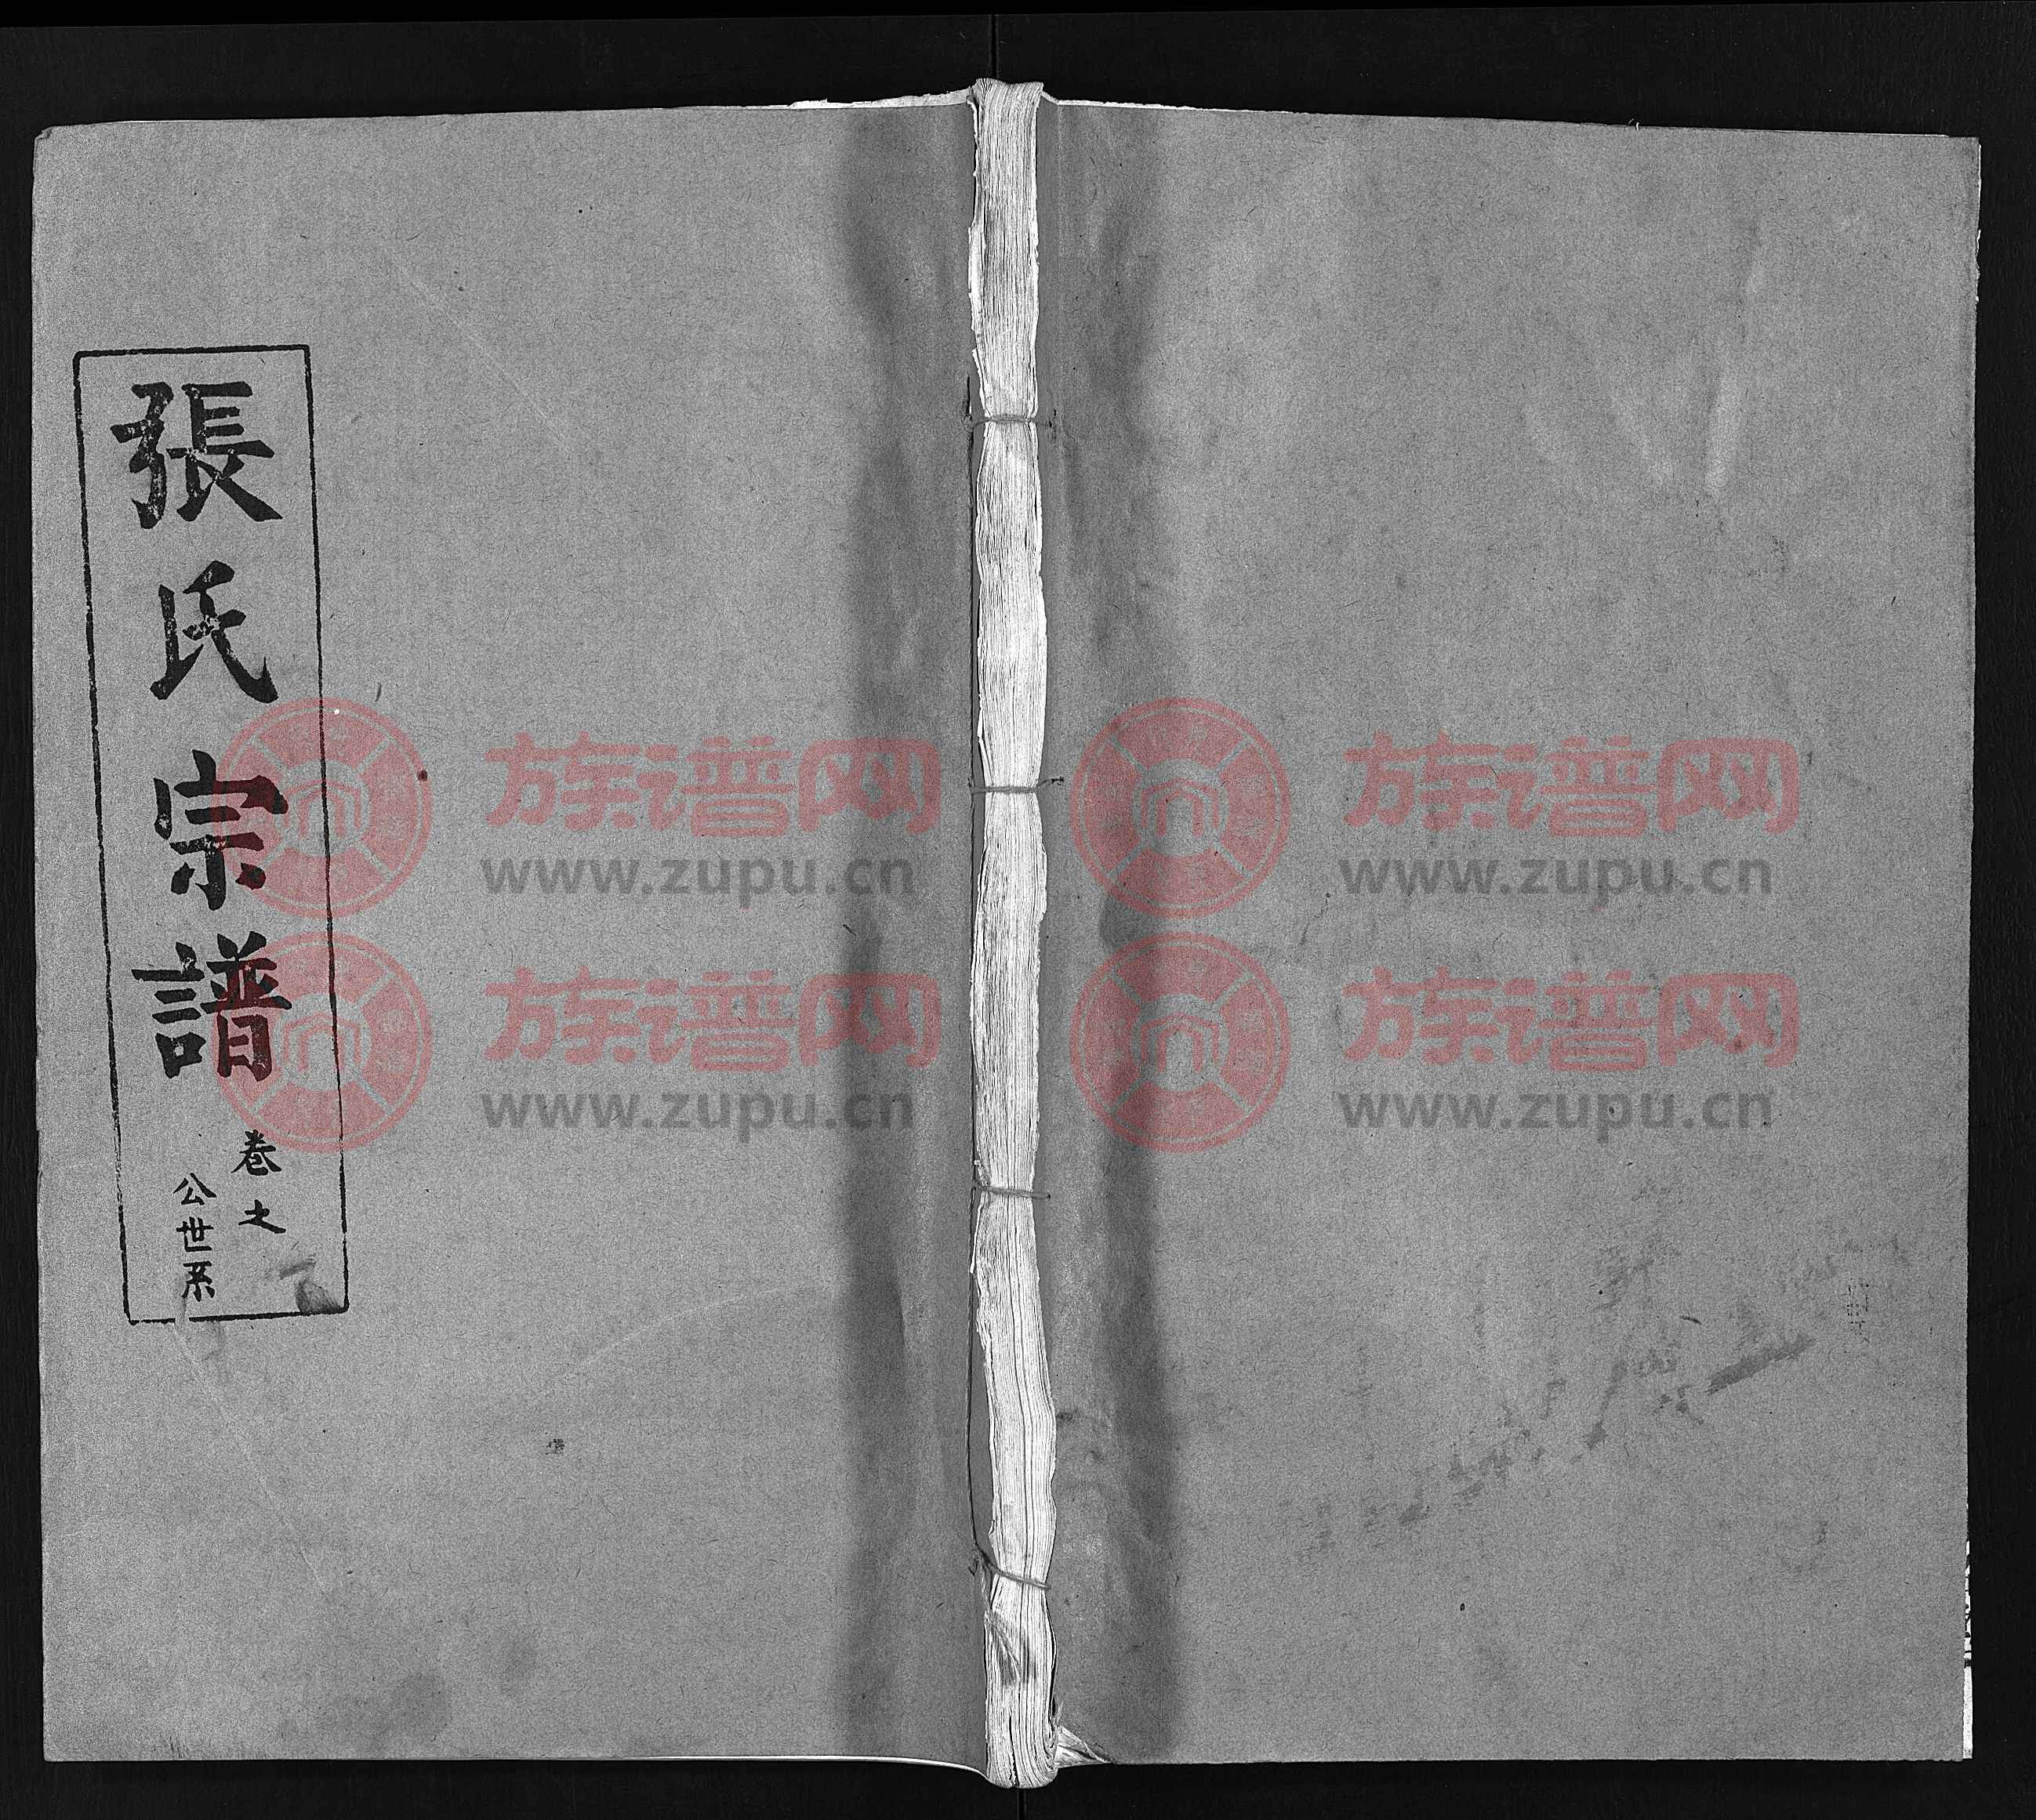 張氏宗譜
卷之
公世系
族谱网
www.zupu.cn
族谱网
www.zupu.cn
族谱网
www.zupu.cn
族谱网
www.zupu.cn